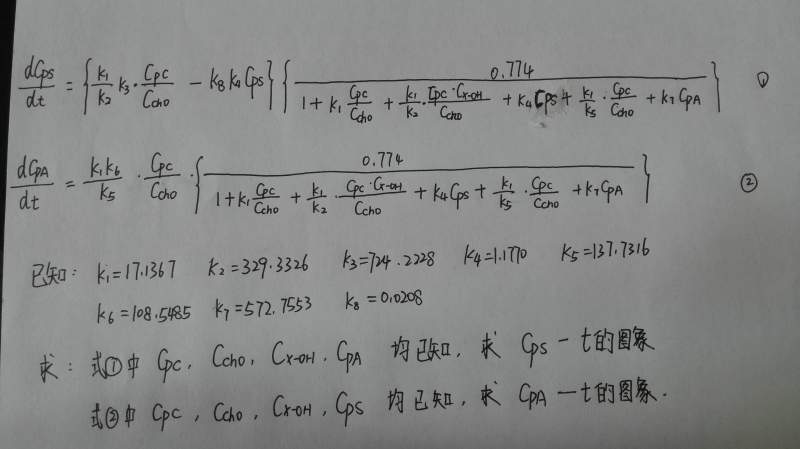 dCps/dt = { k₁/k₂ k₃ · Cpc/Ccho − k₈k₄Cps } { 0.774 / (1 + k₁ Cpc/Ccho + k₁/k₂ · Cpc·Cx-OH/Ccho + k₄Cps + k₁/k₅ · Cpc/Ccho + k₇CpA) } ①
dCpA/dt = k₁k₆/k₅ · Cpc/Ccho · { 0.774 / (1 + k₁ Cpc/Ccho + k₁/k₂ · Cpc·Cx-OH/Ccho + k₄Cps + k₁/k₅ · Cpc/Ccho + k₇CpA) } ②
已知: k₁=17.1367 k₂=329.3326 k₃=724.2228 k₄=1.1770 k₅=137.7316
k₆=108.5485 k₇=572.7553 k₈=0.0208
求: 式①中 Cpc, Ccho, Cx-OH, CpA 均已知, 求 Cps − t的图象
式②中 Cpc, Ccho, Cx-OH, Cps 均已知, 求 CpA − t的图象.